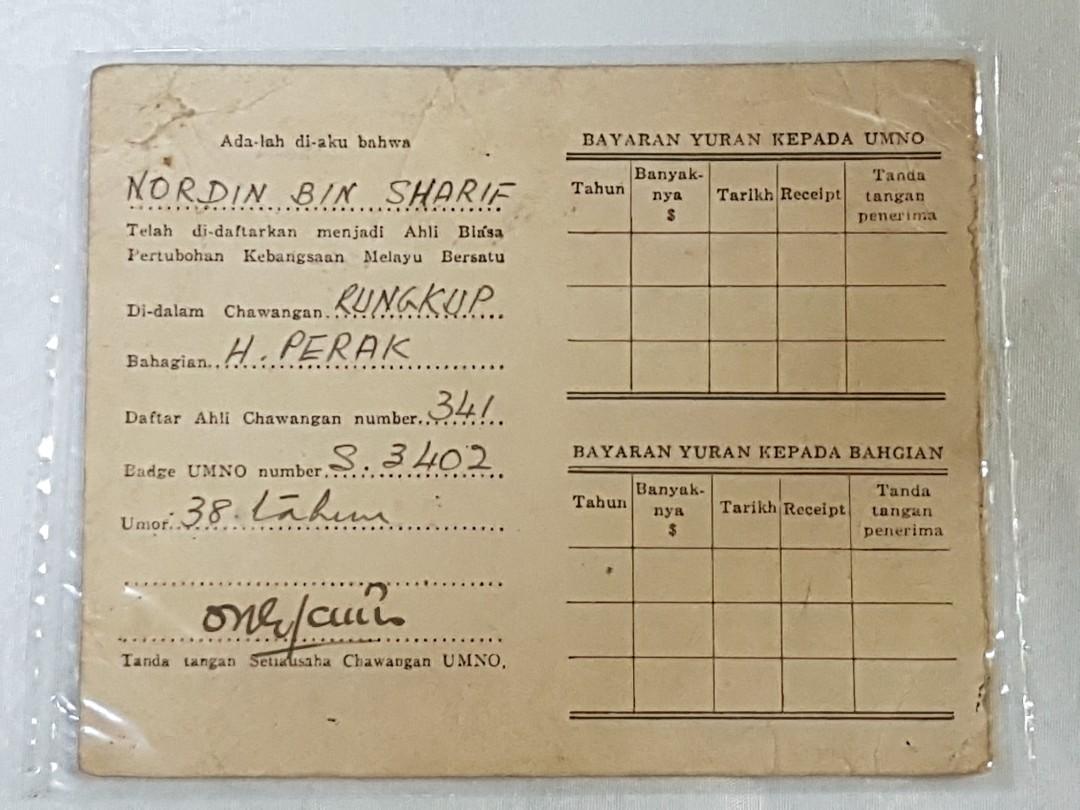 Ada-lah di-aku bahwa
NORDIN BIN SHARIF
Telah di-daftarkan menjadi Ahli Biasa
Pertubohan Kebangsaan Melayu Bersatu
Di-dalam Chawangan RUNGKUP
Bahagian H. PERAK
Daftar Ahli Chawangan number 341
Badge UMNO number S. 3402
Umor 38 tahun
Tanda tangan Setiausaha Chawangan UMNO.
BAYARAN YURAN KEPADA UMNO
Tahun Banyak-nya $ Tarikh Receipt Tanda tangan penerima
BAYARAN YURAN KEPADA BAHGIAN
Tahun Banyak-nya $ Tarikh Receipt Tanda tangan penerima